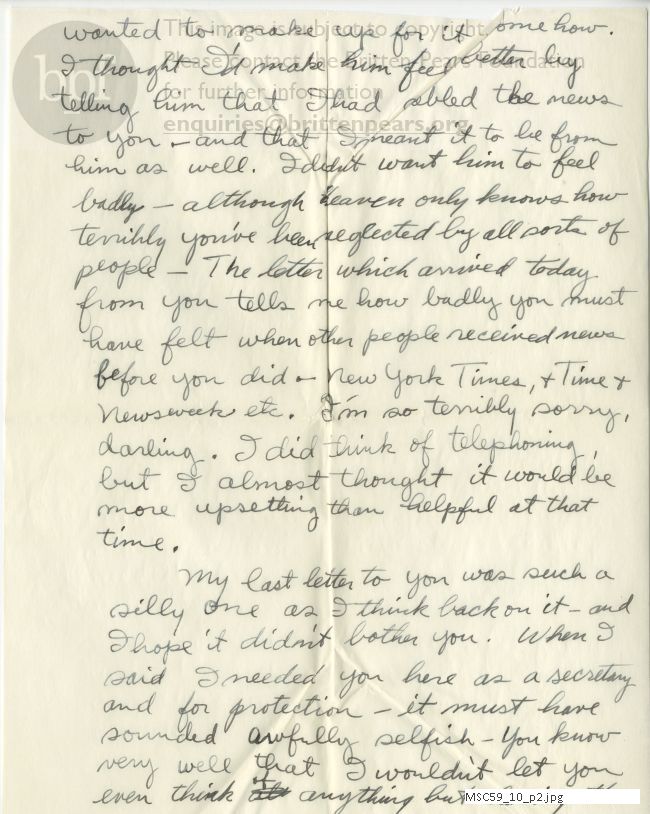 This image is subject to copyright.
Please contact the Britten Pears Foundation
for further information
enquiries@brittenpears.org
wanted to make up for it somehow.
I thought I'd make him feel better by
telling him that I had cabled the news
to you - and that I meant it to be from
him as well. I didn't want him to feel
badly - although heaven only knows how
terribly you've been neglected by all sorts of
people - The letter which arrived today
from you tells me how badly you must
have felt when other people received news
before you did - New York Times, + Time +
Newsweek etc. I'm so terribly sorry,
darling. I did think of telephoning,
but I almost thought it would be
more upsetting than helpful at that
time.
My last letter to you was such a
silly one as I think back on it - and
I hope it didn't bother you. When I
said I needed you here as a secretary
and for protection - it must have
sounded awfully selfish - You know
very well that I wouldn't let you
even think if anything but
MSC59_10_p2.jpg